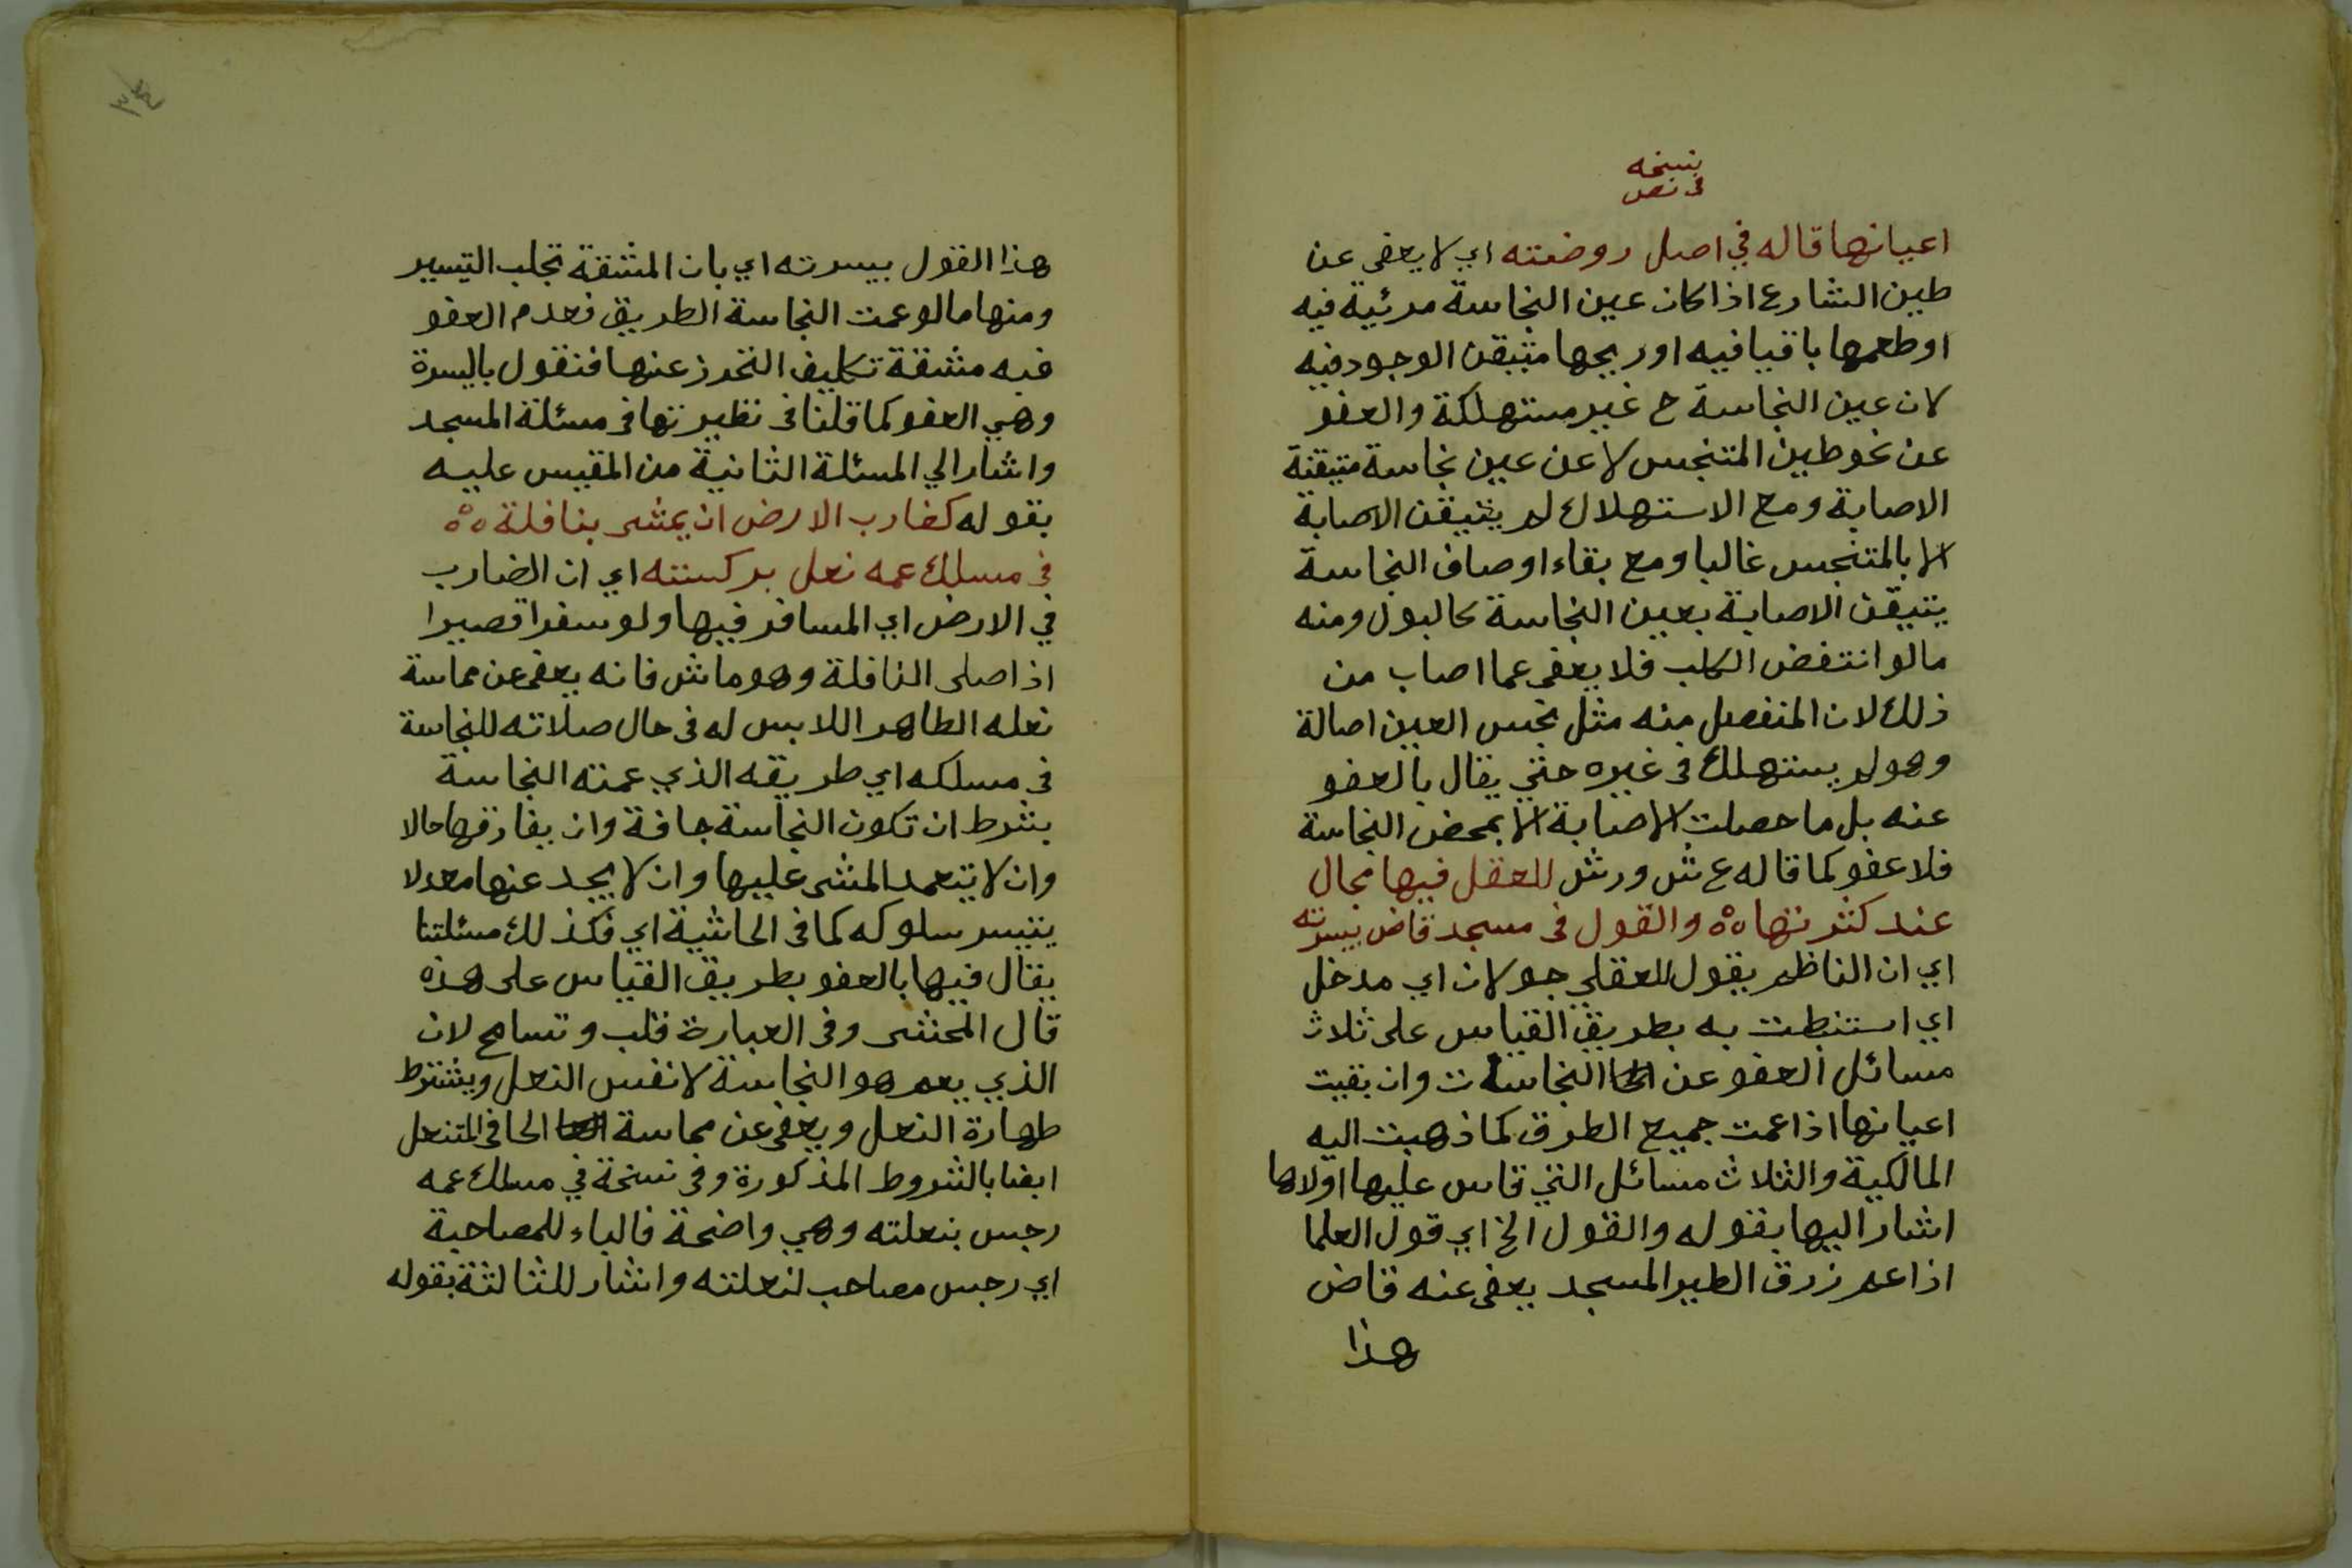 نسخه
في نص
اعيانها قاله في اصل روضته اي لا يعفى عن
طين الشارع اذا كان عين النجاسة مرئية فيه
او طعمها باقيا فيه او ريحها متيقن الوجود فيه
لان عين النجاسة ح غير مستهلكة والعفو
عن نحو طين المتنجس لا عن عين نجاسة متيقنة
الاصابة ومع الاستهلاك لم يتيقن الاصابة
الا بالمتنجس غالبا ومع بقاء اوصاف النجاسة
يتيقن الاصابة بعين النجاسة كالبول ومنه
ما لو انتفض الكلب فلا يعفى عما اصاب من
ذلك لان المنفصل منه مثل نجس العين اصالة
وهو لم يستهلك في غيره حتي يقال بالعفو
عنه بل ما حصلت الاصابة الا بمحض النجاسة
فلا عفو كما قاله ع ش ورش للعقل فيها مجال
عند كثرتها ٥٥ والقول في مسجد قاض بيسرته
اي ان الناظم يقول للعقلي جولان اي مدخل
اي استنبطت به بطريق القياس على ثلاث
مسائل العفو عن النجاسات وان بقيت
اعيانها اذا عمت جميع الطرق كما ذهبت اليه
المالكية والثلاث مسائل التي قاس عليها اولاها
اشار اليها بقوله والقول الخ اي قول العلما
اذا عم زرق الطير المسجد يعفى عنه قاض
هذا
٣٤
هذا القول بيسرته اي بان المشقة تجلب التيسير
ومنها ما لو عمت النجاسة الطريق فعدم العفو
فيه مشقة تكليف التحرز عنها فنقول باليسرة
وهي العفو كما قلنا في نظيرتها في مسئلة المسجد
واشار الي المسئلة الثانية من المقيس عليه
بقوله كضارب الارض ان يمشى بنافلة ٥٥
في مسلك عمه نعل بركسته اي ان الضارب
في الارض اي المسافر فيها ولو سفرا قصيرا
اذا صلى النافلة وهو ماش فانه يعفى عن مماسة
نعله الطاهر اللابس له في حال صلاته للنجاسة
في مسلكه اي طريقه الذي عمته النجاسة
بشرط ان تكون النجاسة جافة وان يفارقها حالا
وان لا يتعمد المشى عليها وان لا يجد عنها معدلا
يتيسر سلوكه كما في الحاشية اي فكذلك مسئلتنا
يقال فيها بالعفو بطريق القياس على هذه
قال المحشى وفي العبارة قلب وتسامح لان
الذي يعم هو النجاسة لا نفس النعل ويشترط
طهارة النعل ويعفى عن مماسة الحافي المتنعل
ايضا بالشروط المذكورة وفي نسخة في مسلك عمه
رجس بنعلته وهي واضحة فالباء للمصاحبة
اي رجس مصاحب لنعلته واشار للثالثة بقوله